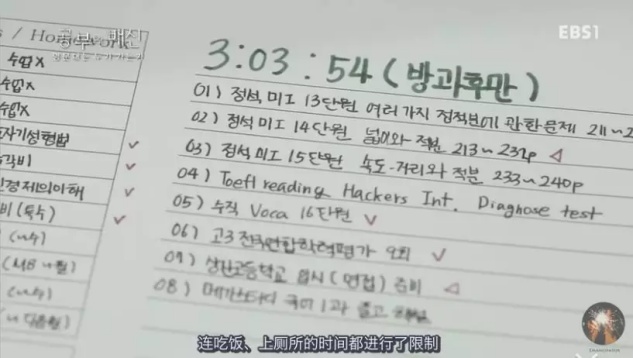 공부의 배신
EBS1
s / Homework
수업X
수업X
수업X
자기성형법
각비
경제의이해
비 (특수)
3:03:54 (방과후만)
01) 정석, 미I 13단원 여러가지 정적분에 관한문제 211~2
02) 정석 미I 14단원 넓이와 적분 213~232p
03) 정석 미I 15단원 속도·거리와 적분 233~240p
04) Toefl reading Hackers Int. Diagnose test
05) 수직 Voca 16단원
06) 고3 전국연합학력평가 2회
07) 상산고등학교 입시 (면접) 준비
08) 메가스터디 국어 1과
连吃饭、上厕所的时间都进行了限制